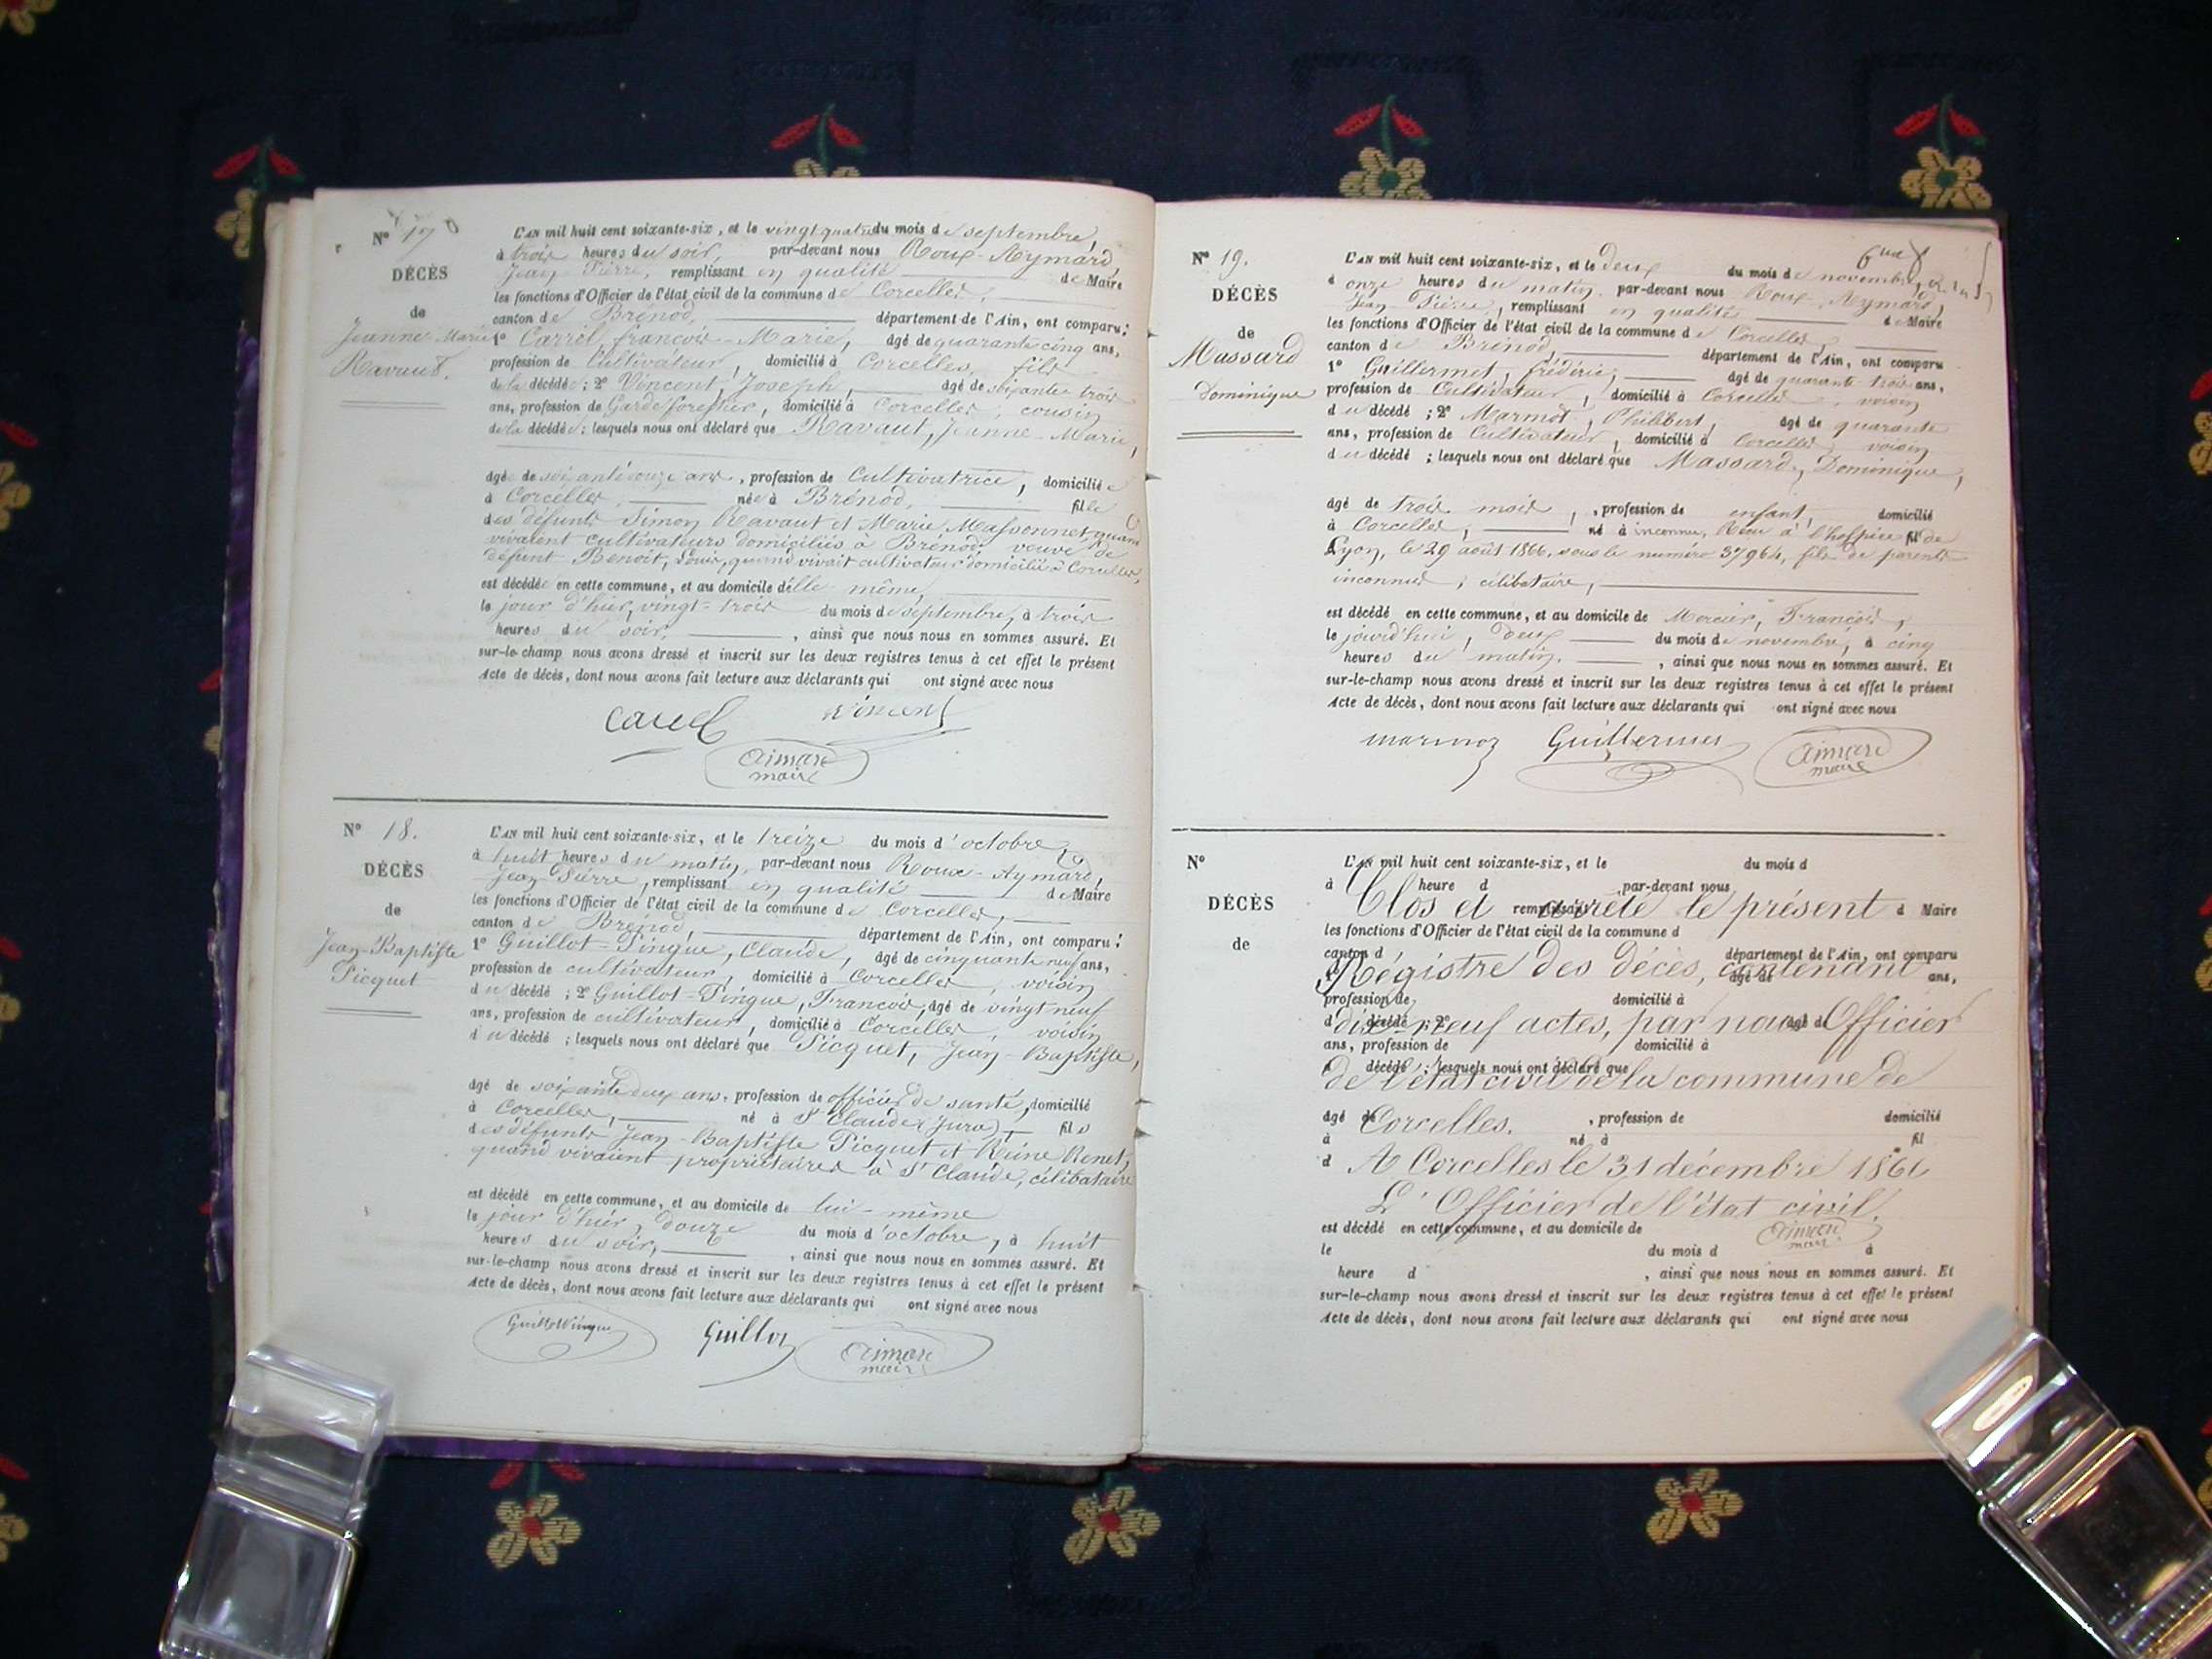 Nº 17
DÉCÈS
de
Jeanne-Marie
Ravaut.
L'AN mil huit cent soixante-six, et le vingt quatre du mois de septembre,
à trois heures du soir, par-devant nous Roux-Aymard,
Jean-Pierre, remplissant en qualité de Maire
les fonctions d'Officier de l'état civil de la commune de Corcelles,
canton de Brénod, département de l'Ain, ont comparu :
1º Carrel, françois-Marie, âgé de quarante cinq ans,
profession de Cultivateur, domicilié à Corcelles, fils
de la décédée ; 2º Vincent, Joseph, âgé de soixante trois
ans, profession de Garde forestier, domicilié à Corcelles, cousin
de la décédée ; lesquels nous ont déclaré que Ravaut, Jeanne-Marie,
âgée de ans, profession de Cultivatrice, domiciliée
à Corcelles, née à Brénod, fille
des défunts Simon Ravaut et Marie Massonnet, quand
vivaient cultivateurs domiciliés à Brénod, veuve de
défunt Benoît, Louis, quand vivait cultivateur domicilié à Corcelles,
est décédée en cette commune, et au domicile d'elle même,
le jour d'hier, vingt-trois du mois de septembre, à trois
heures du soir, , ainsi que nous nous en sommes assuré. Et
sur-le-champ nous avons dressé et inscrit sur les deux registres tenus à cet effet le présent
Acte de décès, dont nous avons fait lecture aux déclarants qui ont signé avec nous
Carrel Vincent
aimard
maire
Nº 18.
DÉCÈS
de
Jean-Baptiste
Picquet
L'AN mil huit cent soixante-six, et le treize du mois d'octobre,
à huit heures du matin, par-devant nous Roux-Aymard,
Jean Pierre, remplissant en qualité de Maire
les fonctions d'Officier de l'état civil de la commune de Corcelles,
canton de Brénod, département de l'Ain, ont comparu :
1º Guillot-Pingue, Claude, âgé de cinquante neuf ans,
profession de cultivateur, domicilié à Corcelles, voisin
du décédé ; 2º Guillot-Pingue, François, âgé de vingt neuf
ans, profession de cultivateur, domicilié à Corcelles, voisin
du décédé ; lesquels nous ont déclaré que Picquet, Jean-Baptiste,
âgé de soixante deux ans, profession de officier de santé, domicilié
à Corcelles, né à St Claude (jura), fils
des défunts Jean-Baptiste Picquet et Reine
quand vivaient propriétaires à St Claude, célibataire
est décédé en cette commune, et au domicile de lui-même
le jour d'hier, douze du mois d'octobre, à huit
heures du soir, , ainsi que nous nous en sommes assuré. Et
sur-le-champ nous avons dressé et inscrit sur les deux registres tenus à cet effet le présent
Acte de décès, dont nous avons fait lecture aux déclarants qui ont signé avec nous
Guillot Pingue Guillot aimard
maire
Nº 19.
DÉCÈS
de
Massard
Dominique
L'AN mil huit cent soixante-six, et le deux du mois de novembre,
à onze heures du matin, par-devant nous Roux-Aymard,
Jean-Pierre, remplissant en qualité de Maire
les fonctions d'Officier de l'état civil de la commune de Corcelles,
canton de Brénod, département de l'Ain, ont comparu
1º Guillermet, frédéric, âgé de quarante trois ans,
profession de Cultivateur, domicilié à Corcelles, voisin
du décédé ; 2º Marmot, Philibert, âgé de quarante
ans, profession de Cultivateur, domicilié à Corcelles, voisin
du décédé ; lesquels nous ont déclaré que Massard, Dominique,
âgé de trois mois, , profession de enfant, domicilié
à Corcelles, né à inconnu, Recu à l'hospice fil de
Lyon, le 29 août 1866, sous le numéro 37964, fils de parents
inconnus, célibataire,
est décédé en cette commune, et au domicile de Mercier, François,
le jourd'hui, deux du mois de novembre, à cinq
heures du matin. , ainsi que nous nous en sommes assuré. Et
sur-le-champ nous avons dressé et inscrit sur les deux registres tenus à cet effet le présent
Acte de décès, dont nous avons fait lecture aux déclarants qui ont signé avec nous
marmoz Guillermet aimard
maire
Nº
DÉCÈS
de
L'AN mil huit cent soixante-six, et le du mois d
à heure d par-devant nous
Clos et arrêté le présent
remplissant d Maire
les fonctions d'Officier de l'état civil de la commune d
canton d département de l'Ain, ont comparu
Régistre des décès, contenant
1º âgé de ans,
profession de domicilié à
dix-neuf actes, par nous Officier
d décédé ; 2º âgé d
ans, profession de domicilié à
d décédé ; lesquels nous ont déclaré que
de l'état civil de la commune de
Corcelles.
âgé de , profession de domicilié
à né à fil
d A Corcelles le 31 décembre 1866
L'Officier de l'état civil.
est décédé en cette commune, et au domicile de aimard
maire
le du mois d à
heure d , ainsi que nous nous en sommes assuré. Et
sur-le-champ nous avons dressé et inscrit sur les deux registres tenus à cet effet le présent
Acte de décès, dont nous avons fait lecture aux déclarants qui ont signé avec nous